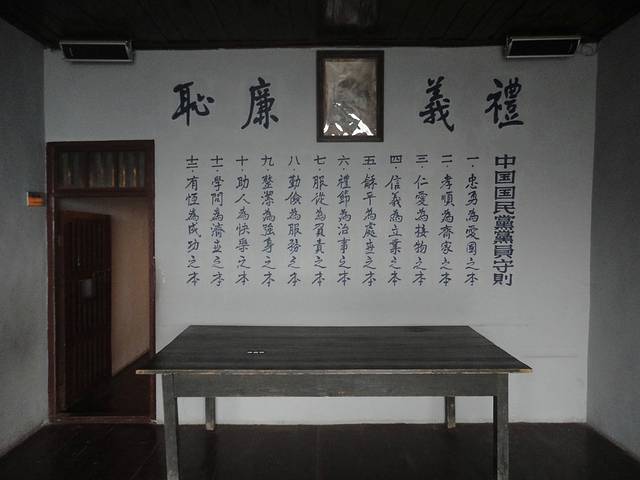 禮義廉恥
中国国民黨黨員守則
一·忠勇為愛国之本
二·孝順為齊家之本
三·仁愛為接物之本
四·信義為立業之本
五·龢平為處世之本
六·禮節為治事之本
七·服從為負責之本
八·勤儉為服務之本
九·整潔為強身之本
十·助人為快樂之本
十一·學問為濟世之本
十二·有恆為成功之本